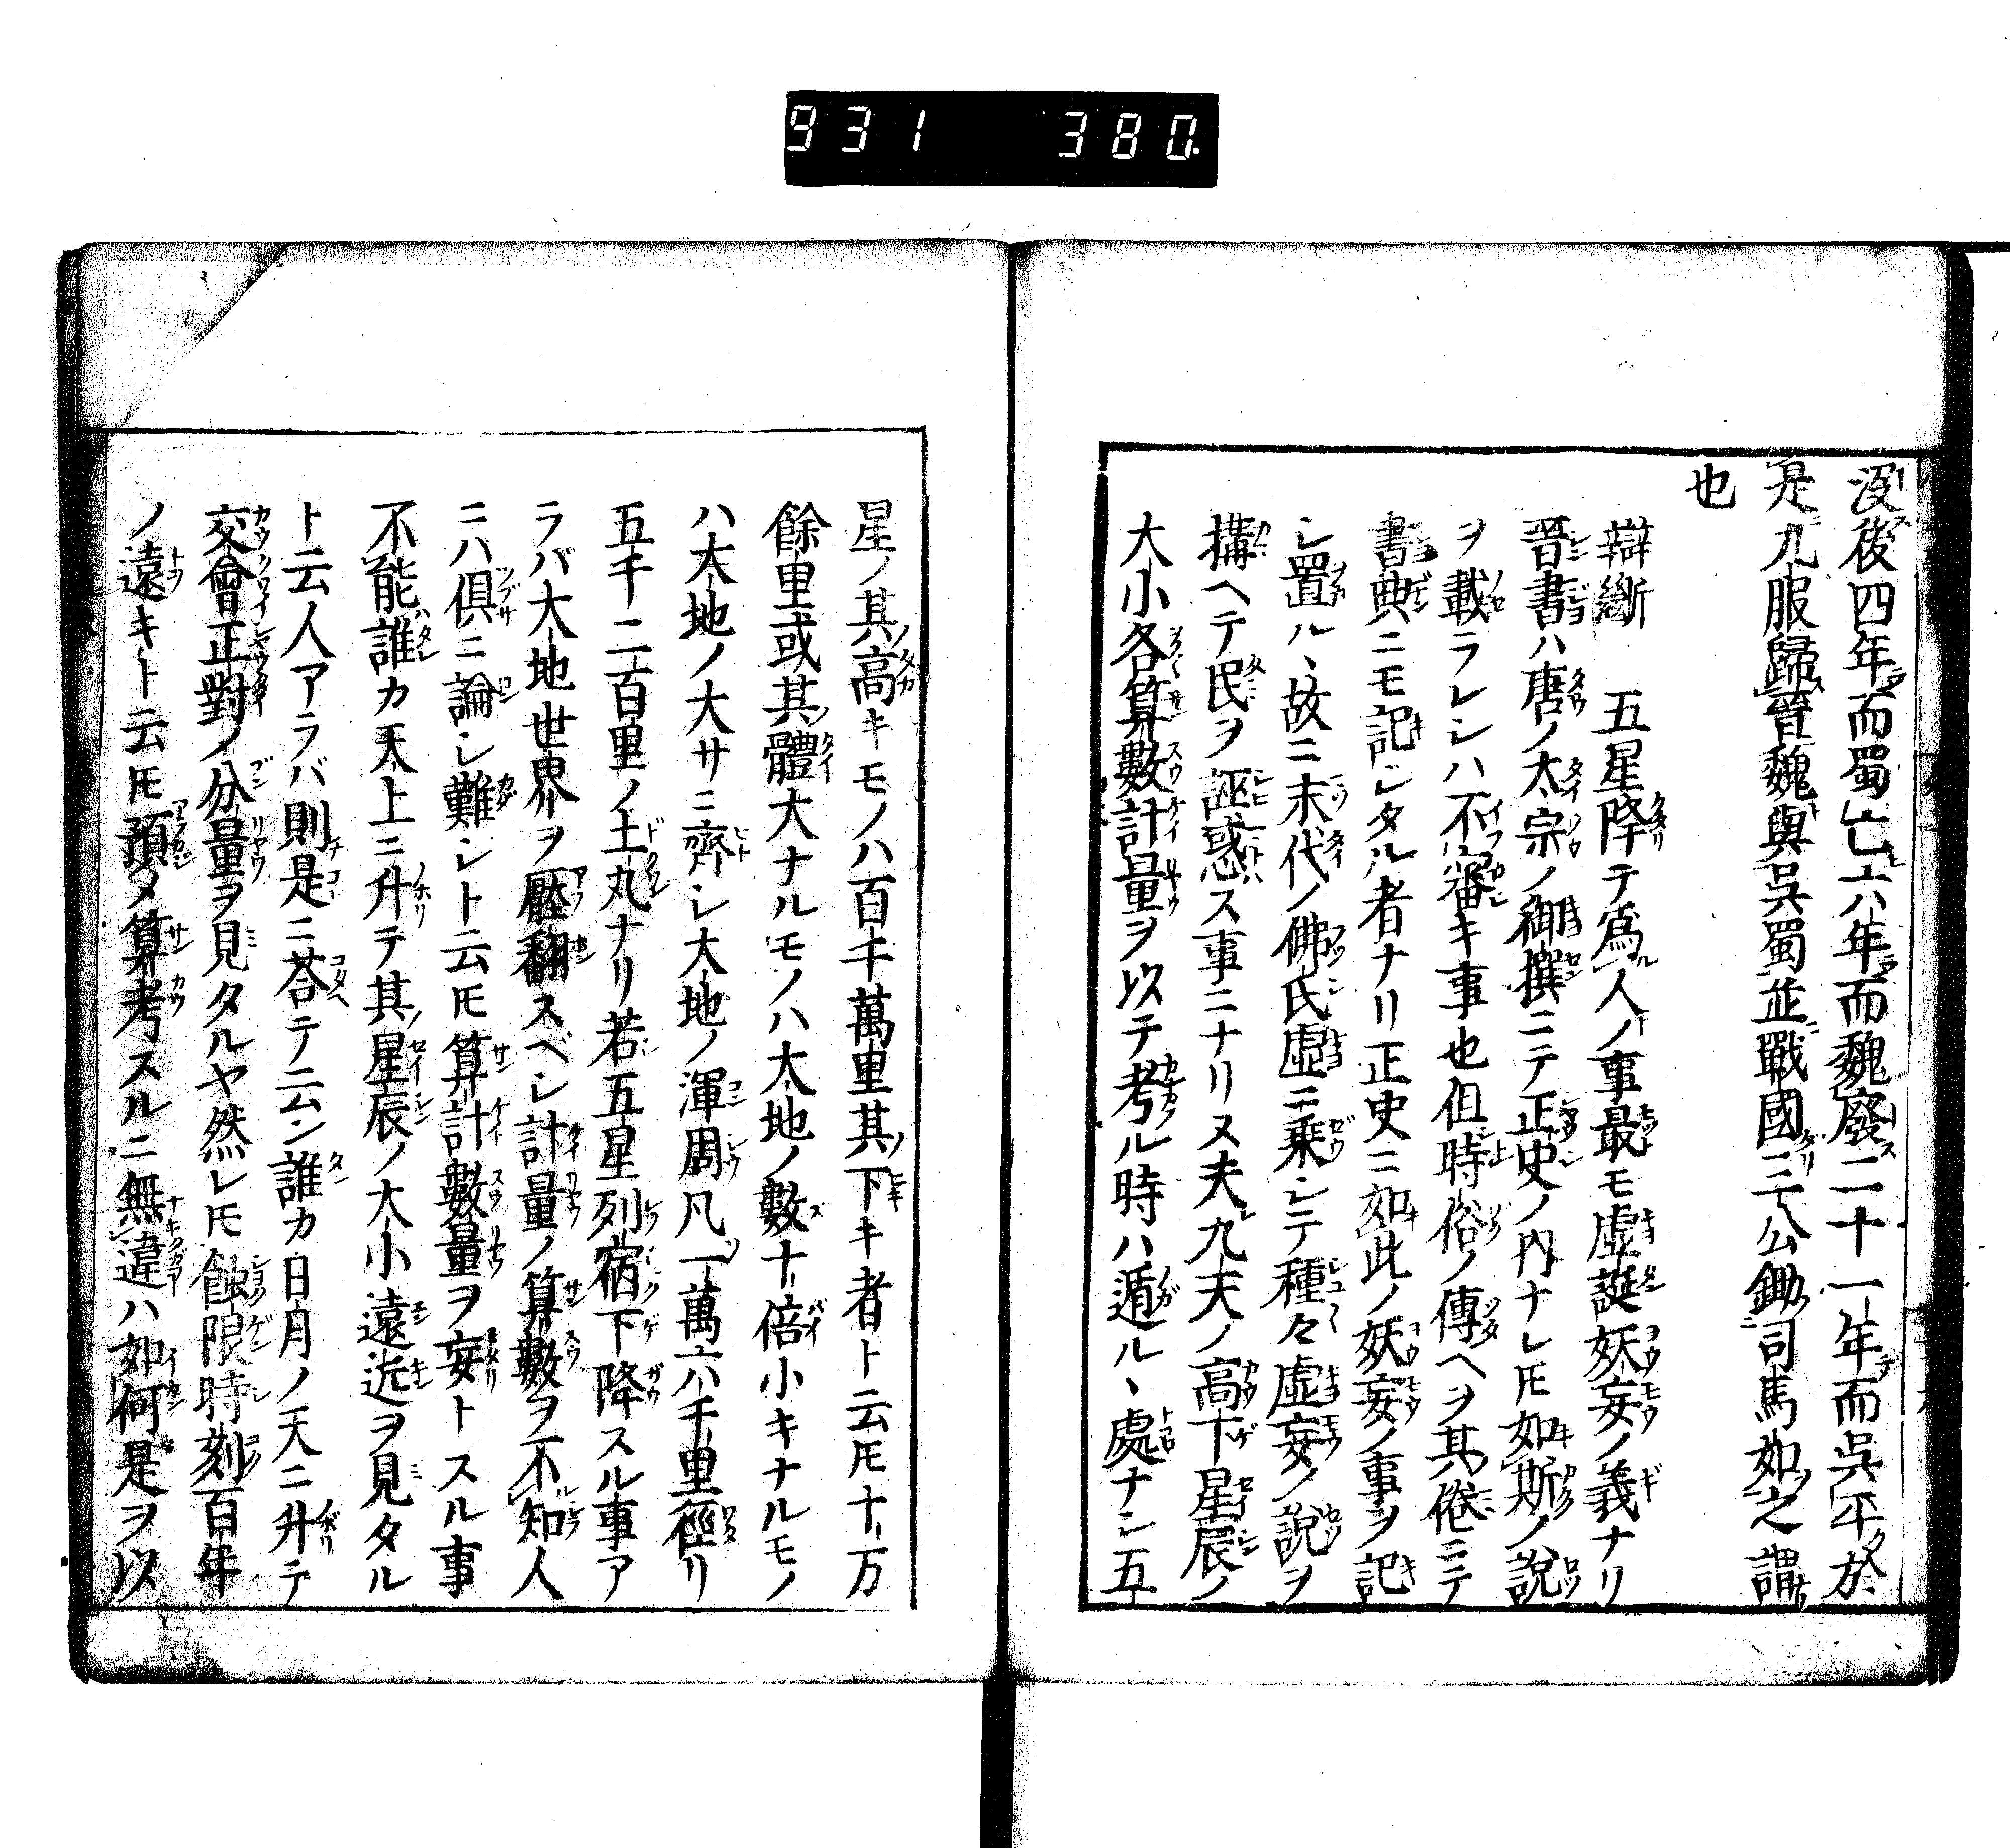 931 380
沒後四年而蜀亡六年而魏廢二十一年而呉平於
是九服歸晉魏與呉蜀並戰國三公鋤司馬如之謂
也
辯斷 五星降テ爲人ノ事最モ虛誕妖妄ノ義ナリ
晋書ハ唐ノ太宗ノ御撰ニテ正史ノ内ナレ𪜈如斯ノ說
ヲ載ラレシハ不審キ事也但時俗ノ傳ヘヲ其儘ニテ
書典ニモ記シタル者ナリ正史ニ如此ノ妖妄ノ事ヲ記
シ置ル丶故ニ末代ノ佛氏虛ニ乗シテ種々虛妄ノ說ヲ
搆ヘテ民ヲ誣惑ス事ニナリヌ夫九天ノ高下星辰ノ
大小各算數計量ヲ以テ考ル時ハ遁ル丶處ナシ五
星ノ其高キモノハ百千萬里其下キ者ト云𪜈十万
餘里或其體大ナルモノハ大地ノ數十倍小キナルモノ
ハ大地ノ大サニ齊シ大地ノ渾周凡一萬六千里徑リ
五千二百里ノ土丸ナリ若五星列宿下降スル事ア
ラバ大地世界ヲ壓翻スベシ計量ノ算數ヲ不知人
ニハ倶ニ論シ難シト云𪜈算計數量ヲ妄トスル事
不能誰カ天上ニ升テ其星辰ノ大小遠近ヲ見タル
ト云人アラバ則是ニ荅テ云ン誰カ日月ノ天ニ升テ
交會正對ノ分量ヲ見タルヤ然レ𪜈蝕限時刻百年
ノ遠キト云𪜈預メ算考スルニ無違ハ如何是ヲ以